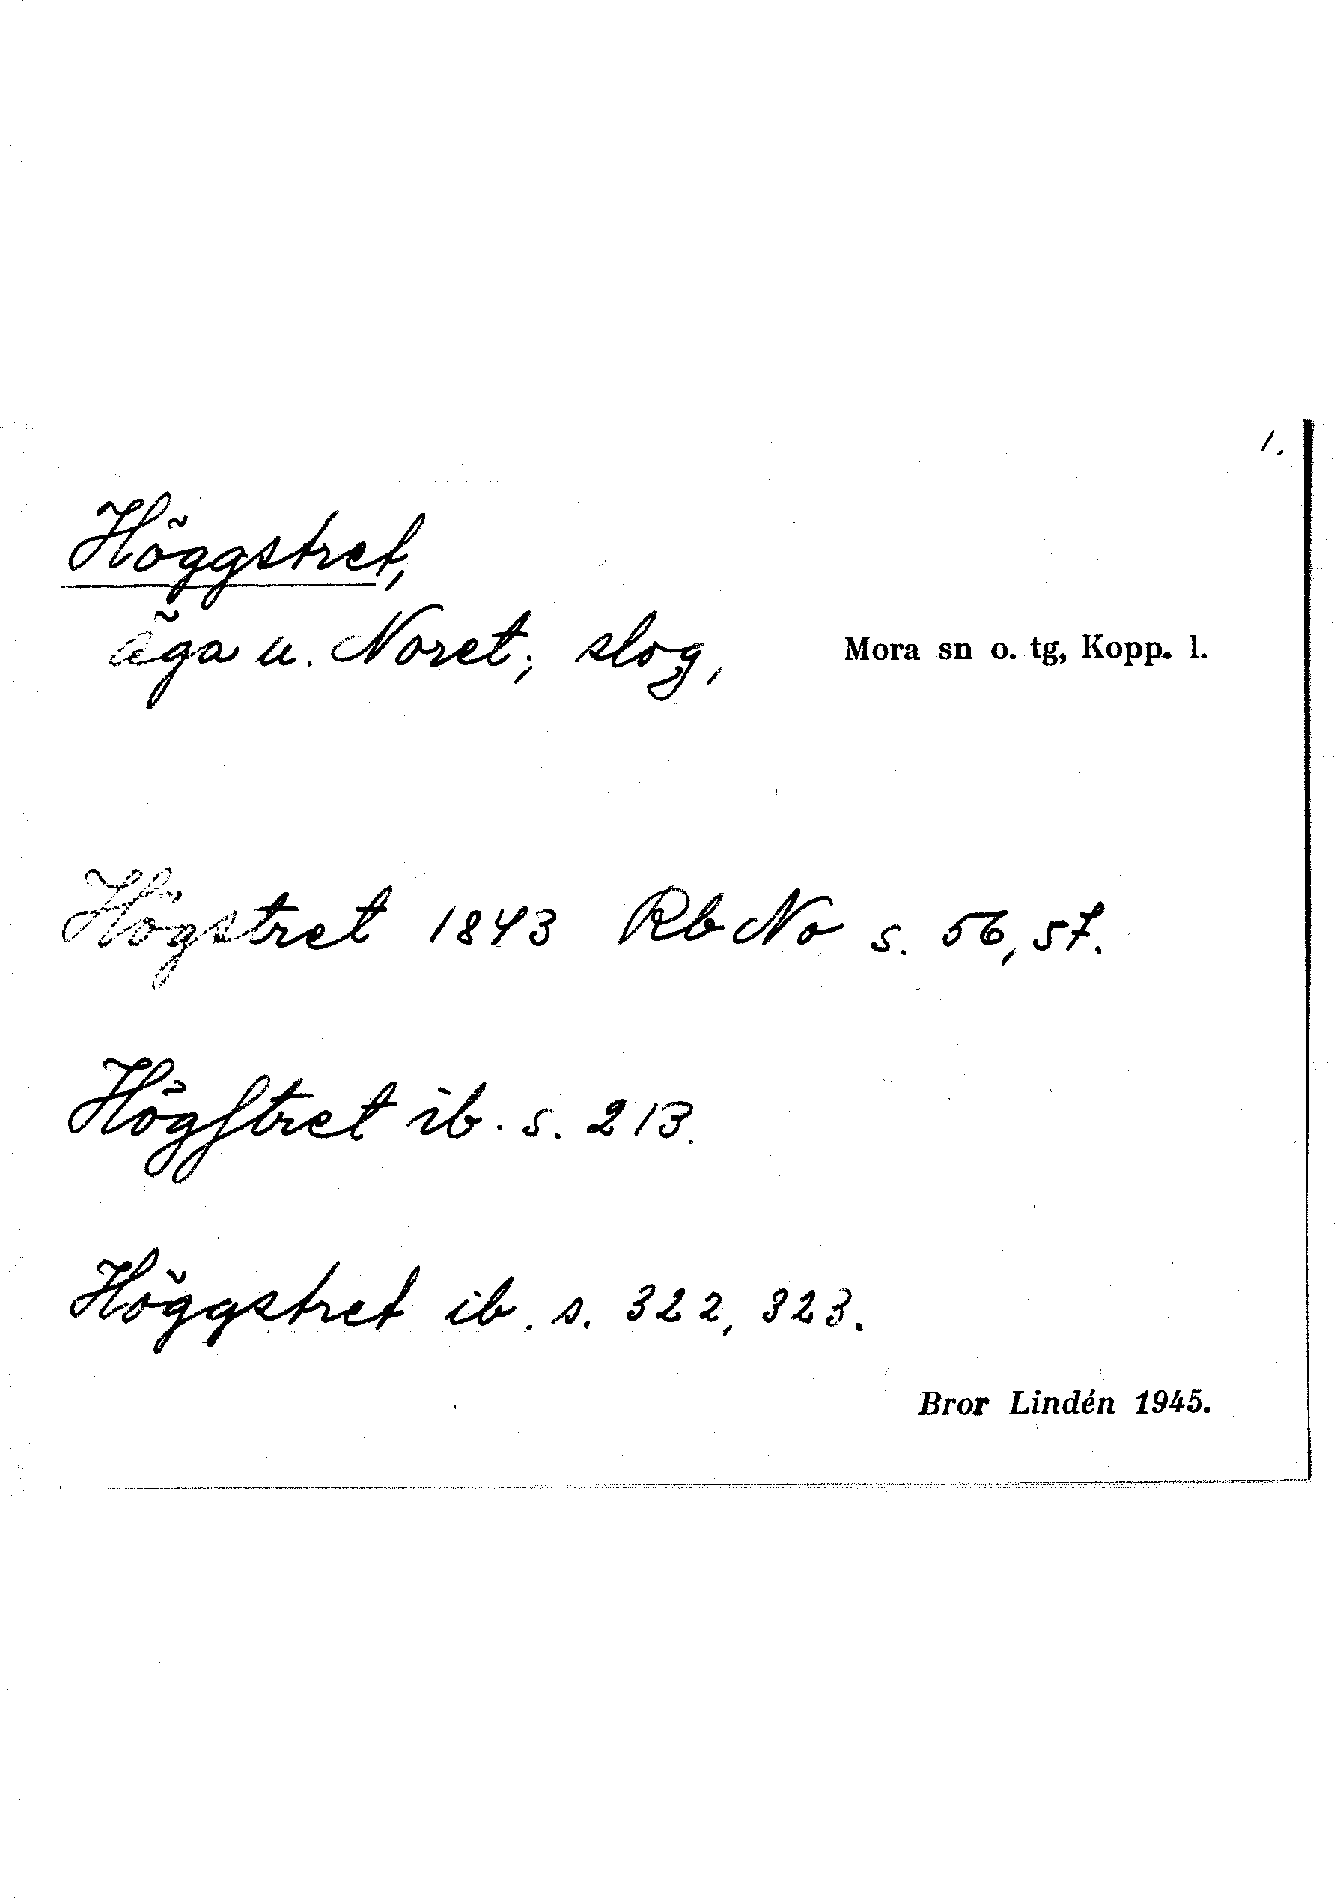 1.
Höggstret,
äga u. Noret; slog, Mora sn o. tg, Kopp. l.
Högstret 1843 Rb No s. 56, 57.
Högſtret ib. s. 213.
Höggstret ib. s. 322, 323.
Bror Lindén 1945.